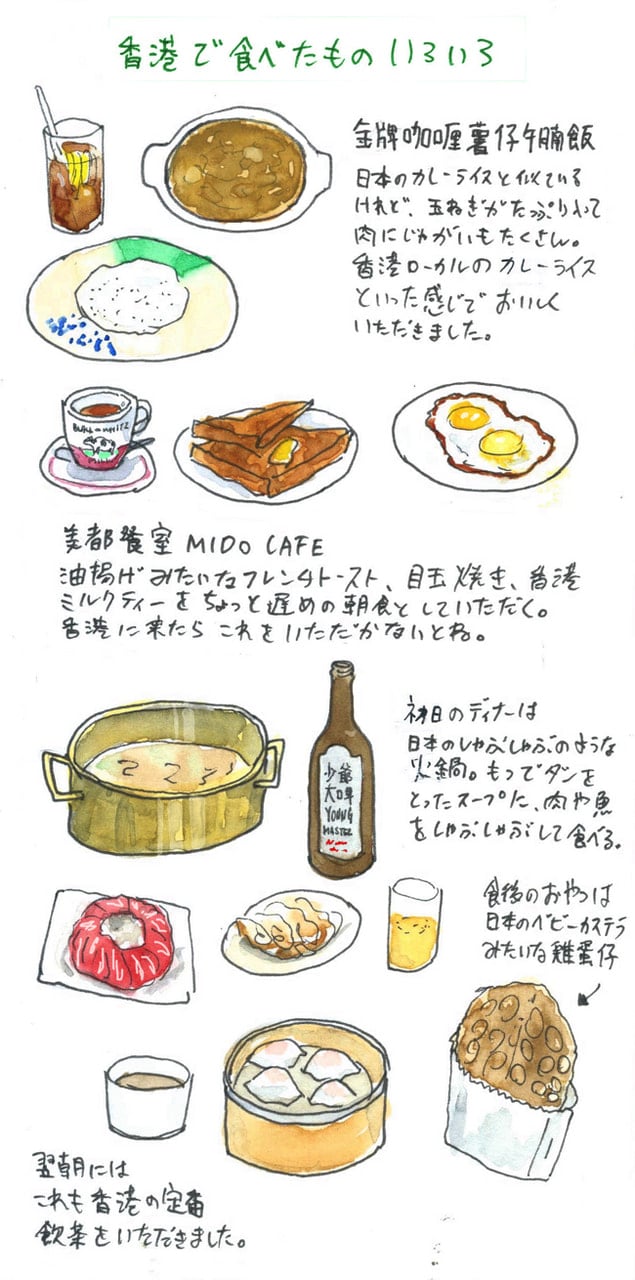 香港で食べたものいろいろ
金牌咖喱薯仔牛腩飯
日本のカレーライスと似ている
けれど、玉ねぎがたっぷり入って
肉にじゃがいもたくさん。
香港ローカルのカレーライス
といった感じでおいしく
いただきました。
BLACK & WHITE
MILK
美都餐室 MIDO CAFE
油揚げみたいなフレンチトースト、目玉焼き、香港
ミルクティーをちょっと遅めの朝食としていただく。
香港に来たらこれをいただかないとね。
少爺
大啤
YOUNG
MASTER
初日のディナーは
日本のしゃぶしゃぶのような
火鍋。もつでダシを
とったスープに、肉や魚
をしゃぶしゃぶして食べる。
食後のおやつは
日本のベビーカステラ
みたいな雞蛋仔
翌朝には
これも香港の定番
飲茶をいただきました。